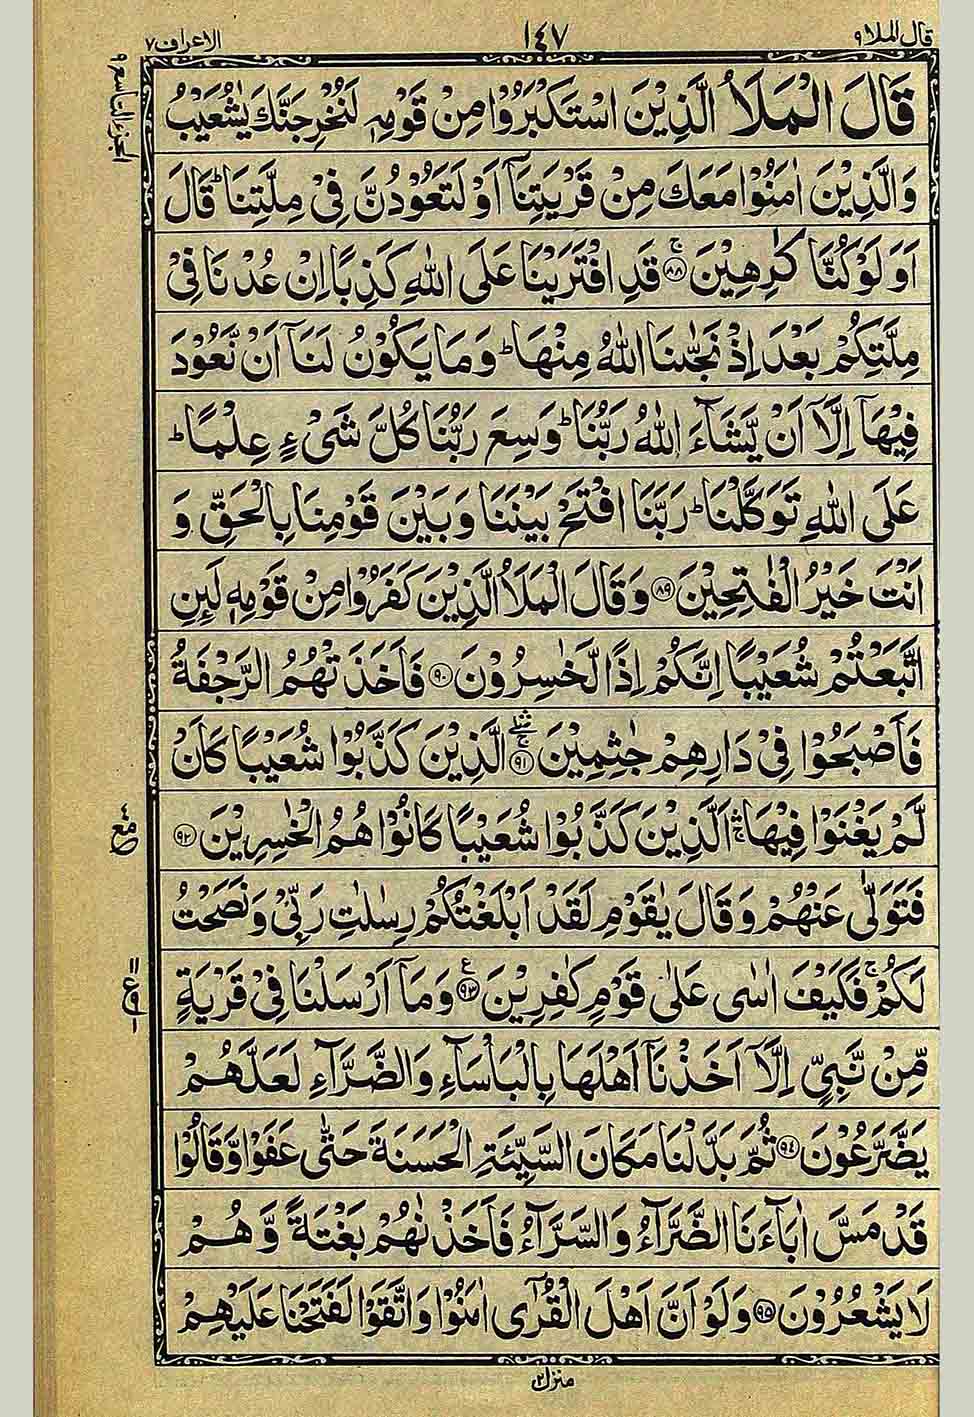 قال الملا ٩
١٤٧
الاعراف ٧
قَالَ الْمَلَاُ الَّذِيْنَ اسْتَكْبَرُوْا مِنْ قَوْمِهٖ لَنُخْرِجَنَّكَ يٰشُعَيْبُ
وَالَّذِيْنَ اٰمَنُوْا مَعَكَ مِنْ قَرْيَتِنَآ اَوْ لَتَعُوْدُنَّ فِيْ مِلَّتِنَا ؕ قَالَ
اَوَلَوْ كُنَّا كٰرِهِيْنَ ۚ ﴿٨٨﴾ قَدِ افْتَرَيْنَا عَلَى اللّٰهِ كَذِبًا اِنْ عُدْنَا فِيْ
مِلَّتِكُمْ بَعْدَ اِذْ نَجّٰىنَا اللّٰهُ مِنْهَا ؕ وَمَا يَكُوْنُ لَنَآ اَنْ نَّعُوْدَ
فِيْهَآ اِلَّآ اَنْ يَّشَآءَ اللّٰهُ رَبُّنَا ؕ وَسِعَ رَبُّنَا كُلَّ شَيْءٍ عِلْمًا ؕ
عَلَى اللّٰهِ تَوَكَّلْنَا ؕ رَبَّنَا افْتَحْ بَيْنَنَا وَبَيْنَ قَوْمِنَا بِالْحَقِّ وَ
اَنْتَ خَيْرُ الْفٰتِحِيْنَ ﴿٨٩﴾ وَقَالَ الْمَلَاُ الَّذِيْنَ كَفَرُوْا مِنْ قَوْمِهٖ لَئِنِ
اتَّبَعْتُمْ شُعَيْبًا اِنَّكُمْ اِذًا لَّخٰسِرُوْنَ ﴿٩٠﴾ فَاَخَذَتْهُمُ الرَّجْفَةُ
فَاَصْبَحُوْا فِيْ دَارِهِمْ جٰثِمِيْنَ ۚ ﴿٩١﴾ الَّذِيْنَ كَذَّبُوْا شُعَيْبًا كَاَنْ
لَّمْ يَغْنَوْا فِيْهَا ۚ اَلَّذِيْنَ كَذَّبُوْا شُعَيْبًا كَانُوْا هُمُ الْخٰسِرِيْنَ ﴿٩٢﴾
فَتَوَلّٰى عَنْهُمْ وَقَالَ يٰقَوْمِ لَقَدْ اَبْلَغْتُكُمْ رِسٰلٰتِ رَبِّيْ وَنَصَحْتُ
لَكُمْ ۚ فَكَيْفَ اٰسٰى عَلٰى قَوْمٍ كٰفِرِيْنَ ﴿٩٣﴾ وَمَآ اَرْسَلْنَا فِيْ قَرْيَةٍ
مِّنْ نَّبِيٍّ اِلَّآ اَخَذْنَآ اَهْلَهَا بِالْبَاْسَآءِ وَالضَّرَّآءِ لَعَلَّهُمْ
يَضَّرَّعُوْنَ ﴿٩٤﴾ ثُمَّ بَدَّلْنَا مَكَانَ السَّيِّئَةِ الْحَسَنَةَ حَتّٰى عَفَوْا وَّقَالُوْا
قَدْ مَسَّ اٰبَآءَنَا الضَّرَّآءُ وَالسَّرَّآءُ فَاَخَذْنٰهُمْ بَغْتَةً وَّهُمْ
لَا يَشْعُرُوْنَ ﴿٩٥﴾ وَلَوْ اَنَّ اَهْلَ الْقُرٰٓى اٰمَنُوْا وَاتَّقَوْا لَفَتَحْنَا عَلَيْهِمْ
منزل ٢
الجزء التاسع ٩